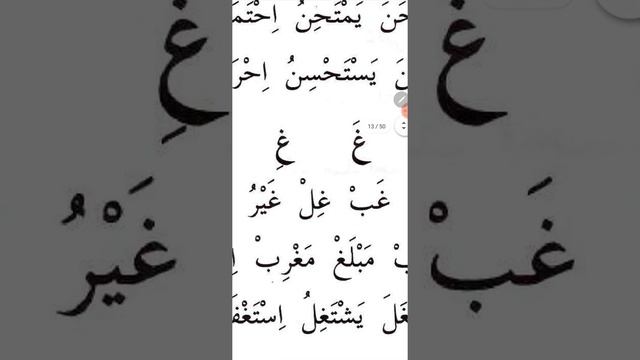 حَنَ يَمْتَحِنُ اِحْتَمَ
نَ يَسْتَحْسِنُ اِحْرَ
13/50
غَ غِ
غَبْ غِلْ غَيْرُ
بْ مَبْلَغْ مَغْرِبْ
غَلَ يَشْتَغِلُ اِسْتَغْفَ